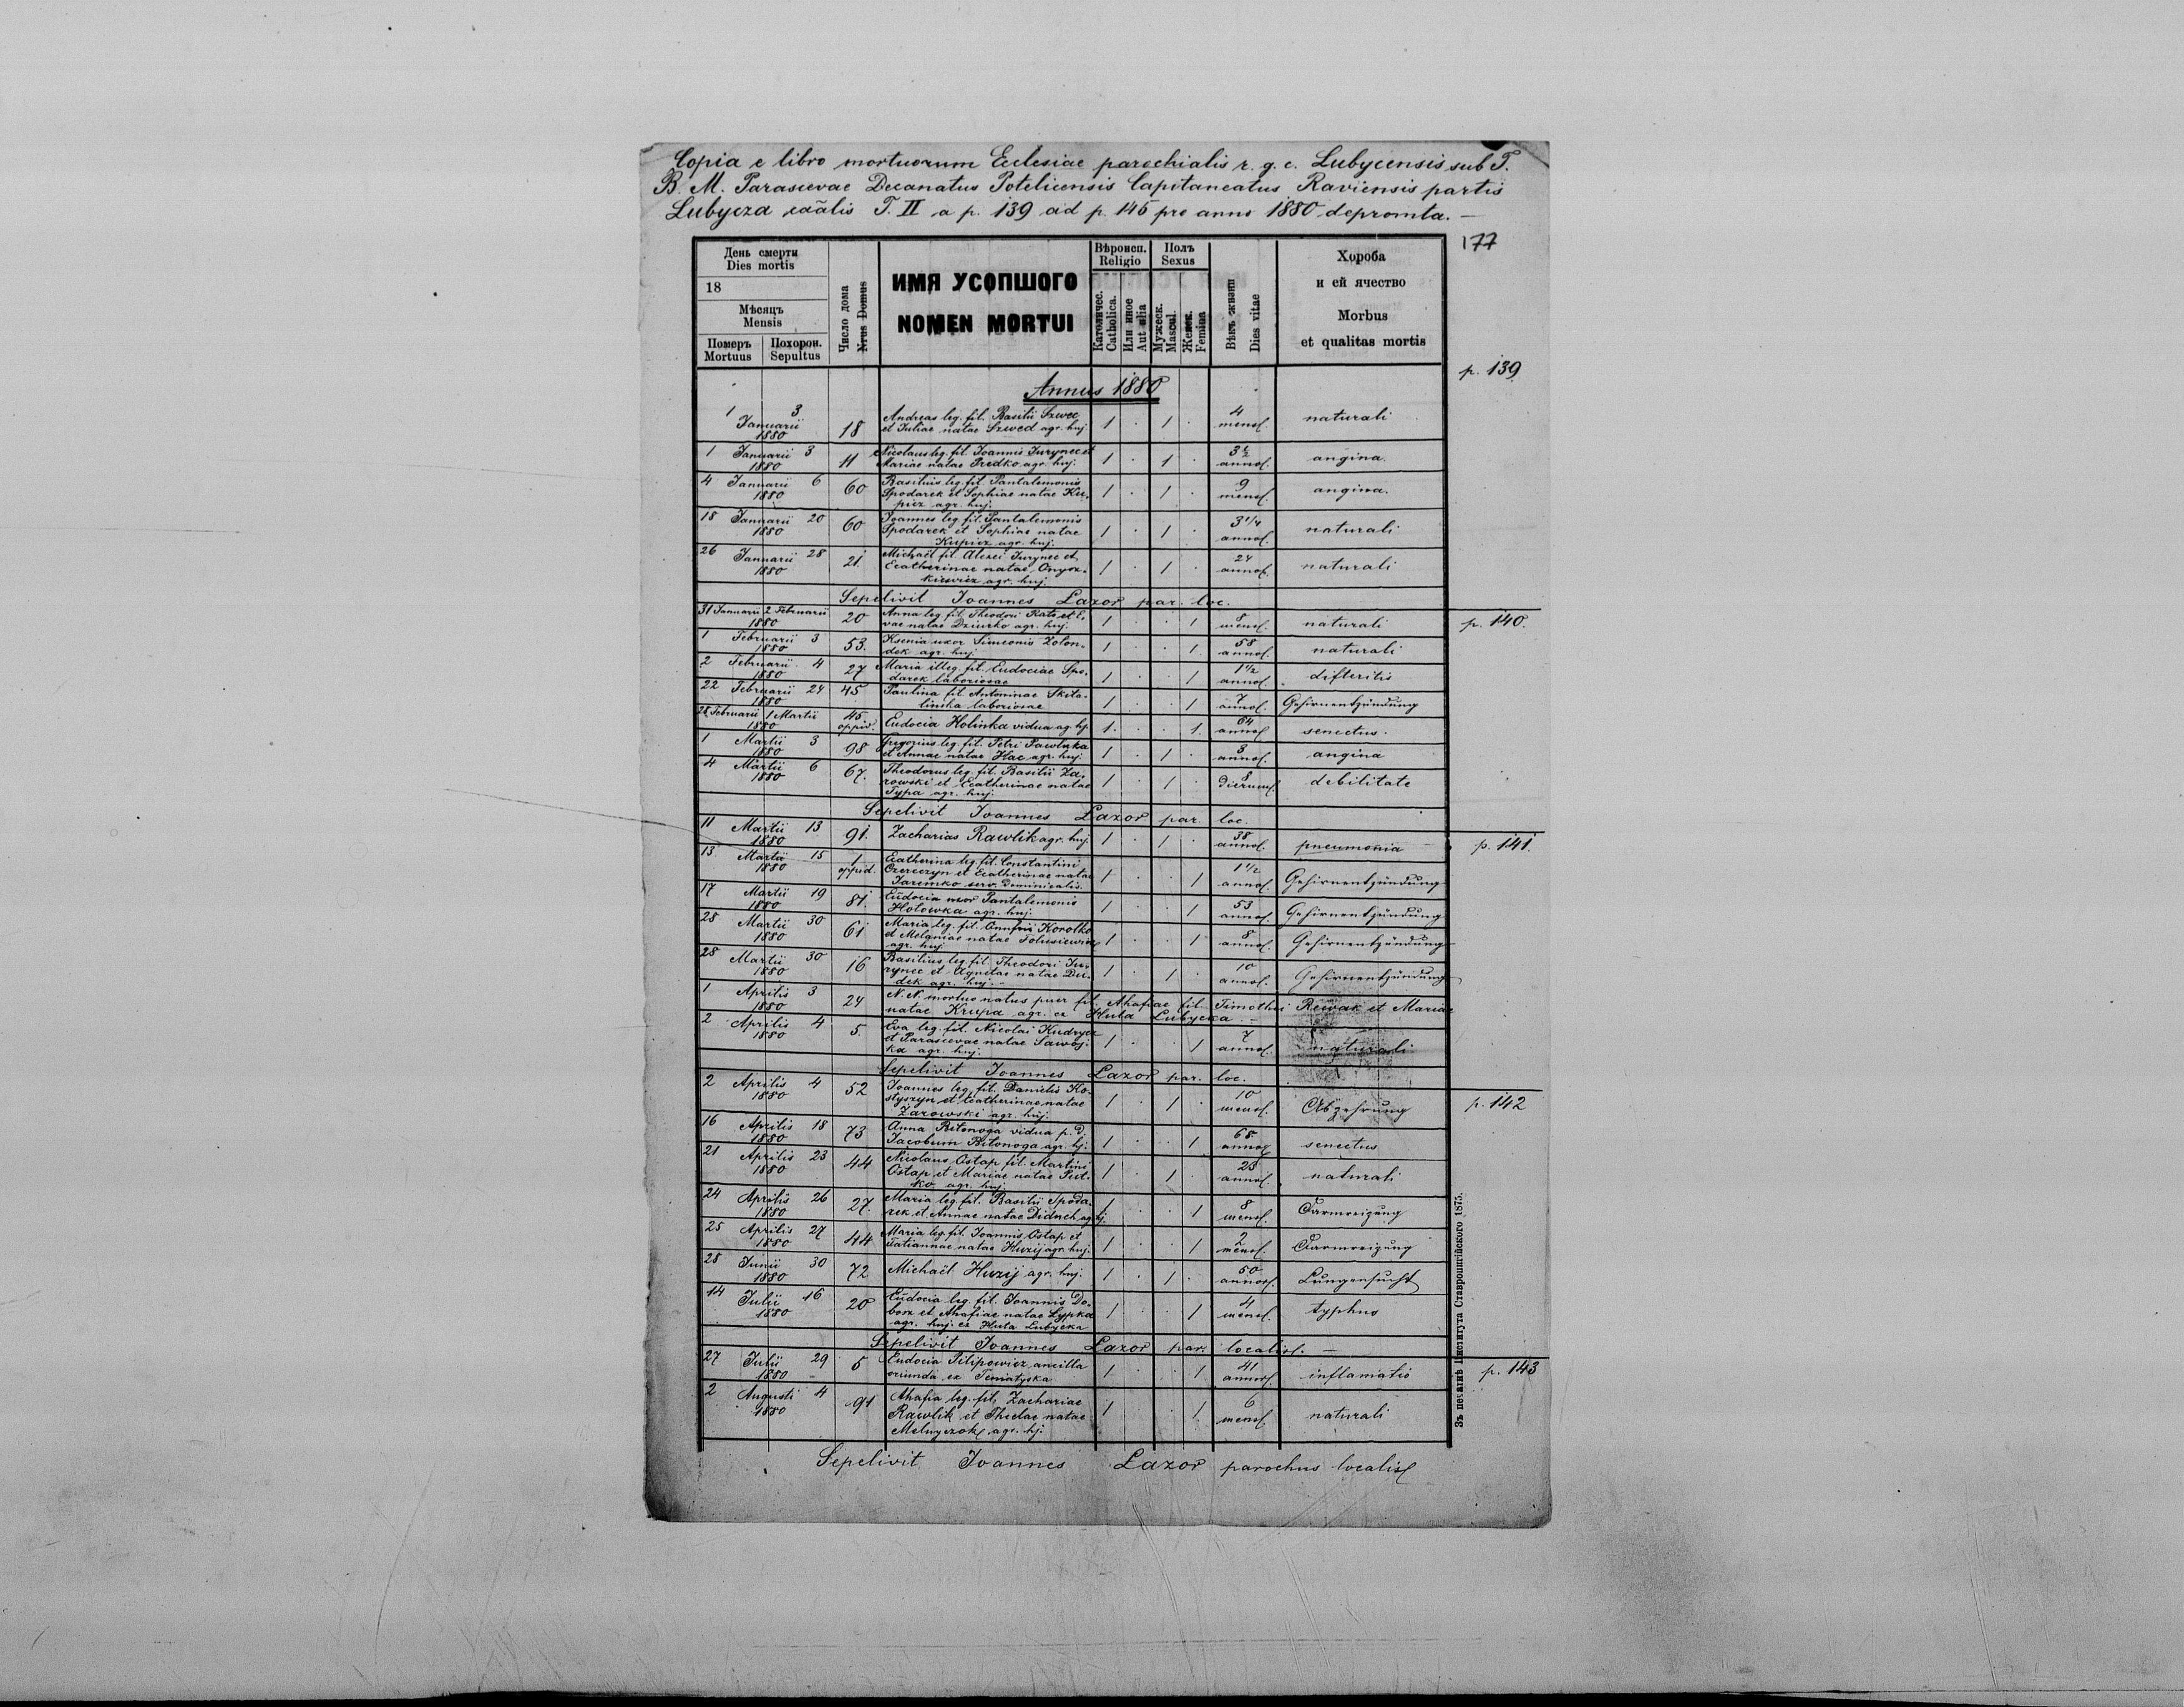 Copia e libro mortuorum Ecclesiae parochialis r. g. c. Lubycensis sub T.
B. M. Parascevae Decanatus Potelicensis Capitaneatus Raviensis partis
Lubycza caälis T. II a p. 139 ad p. 145 pro anno 1880 depromta. —
177
День смерти
Dies mortis
18
Мѣсяцъ
Mensis
Померъ
Mortuus
Похорон.
Sepultus
Число дома
Nrus Domus
ИМЯ УСОПШОГО
NOMEN MORTUI
Вѣроисп.
Religio
Католичес.
Catholica.
Или иное
Aut alia
Полъ
Sexus
Мужеск.
Mascul.
Женск.
Femina
Вѣкъ жизни
Dies vitae
Хороба
и ей ячество
Morbus
et qualitas mortis
p. 139
Annus 1880
1 3 Januarii 1880 18 Andreas leg. fil. Basilii Szwec 1 . 1 . 4 mens. naturali
et Juliae natae Szwed agr. huj
1 Januarii 3 1880 11 Nicolaus leg. fil. Joannis Jurynec et 1 . 1 . 3½ annos. angina.
Mariae natae Predko agr. huj.
4 Januarii 6 1880 60 Basilius leg. fil. Pantalemonis 1 . 1 . 9 mens. angina.
Spodarek et Sophiae natae Ku-
piez agr. huj.
18 Januarii 20 1880 60 Joannes leg. fil. Pantalemonis 1 . 1 . 3 1/4 annos. naturali
Spodarek et Sophiae natae
Kupiez agr. huj.
26 Januarii 28 1880 21. Michaël fil. Alexei Jurynec et 1 . 1 . 24 annos. naturali
Ecatherinae natae Onysz-
kiewicz agr. huj.
Sepelivit Joannes Lazor par. loc.
31 Januarii 2 Februarii 1880 20 Anna leg. fil. Theodori Rate et E- 1 . . 1 8 mens. naturali p. 140.
vae natae Dziurko agr. huj.
1 Februarii 3 1880 53. Ksenia uxor Simeonis Zolon- 1 . . 1 58 annos. naturali
dek agr. huj.
2 Februarii 4 1880 27 Maria illeg. fil. Eudociae Spo- 1 . . 1 1½ annos. difteritis
darek laboriosae
22 Februarii 24 1880 45 Paulina fil. Antoninae Skita- 1 . . 1 7 annos. Gehirnentzündung
linska laboriosae
28 Februarii 1 Martii 1880 45 oppid. Eudocia Holinka vidua ag. hj. 1. . . 1. 64 annos. senectus.
1 Martii 3 1880 98 Gregorius leg. fil. Petri Pawluka 1 . 1 . 3 annos. angina
et Annae natae Hac agr. huj.
4 Martii 6 1880 67. Theodorus leg. fil. Basilii Za- 1 . 1 . 8 dierum debilitate
rowski et Ecatherinae natae
Typa agr. huj.
Sepelivit Joannes Lazor par. loc.
11 Martii 13 1880 91. Zacharias Rawlik agr. huj. 1 . 1 . 38 annos. pneumonia p. 141.
13 Martii 15 1880 1 oppid. Ecatherina leg. fil. Constantini 1 . . 1 1½ annos. Gehirnentzündung
Czerczyn et Ecatherinae natae
Jaremko serv. Dominicalis.
17 Martii 19 1880 81. Eudocia uxor Pantalemonis 1 . . 1 53 annos. Gehirnentzündung
Holowka agr. huj.
28 Martii 30 1880 61 Maria leg. fil. Onufrii Korotko 1 . . 1 8 annos. Gehirnentzündung
et Melaniae natae Tolusiewicz
agr. huj.
28 Martii 30 1880 16 Basilius leg. fil. Theodori Ju- 1 . 1 . 10 annos. Gehirnentzündung
rynec et Agnetae natae Du-
dek agr. huj. -
1 Aprilis 3 1880 24 N. N. mortuo natus puer fil. Ahafiae fil. Timothei Rewak et Mariae
natae Krupa agr. ex Huta Lubycka. —
2 Aprilis 4 1880 5. Eva leg. fil. Nicolai Kudrycz 1 . . 1 7 annos. naturali
et Parascevae natae Sawoj-
ka agr. huj.
Sepelivit Joannes Lazor par. loc.
2 Aprilis 4 1880 52 Joannes leg. fil. Danielis Ko- 1 . 1 . 10 mens. Abzehrung p. 142
styszyn et Ecatherinae natae
Zarowski agr. huj.
16 Aprilis 18 1880 73 Anna Bilonoga vidua p. d. 1 . . 1 68 annos. senectus
Jacobum Bilonoga agr. hj.
21 Aprilis 23 1880 44 Nicolaus Ostap fil. Martini 1 . 1 . 23 annos. naturali
Ostap et Mariae natae Put-
ko agr. huj.
24 Aprilis 26 1880 27. Maria leg. fil. Basilii Spoda- 1 . . 1 8 mens.
rek et Annae natae Diduch ag. hj.
25 Aprilis 27 1880 44 Maria leg. fil. Joannis Ostap et 1 . . 1 2 mens.
Tatiannae natae Huzij agr. huj.
28 Junii 30 1880 72 Michaël Huzij agr. huj. 1 . 1 . 50 annos. Lungensucht
14 Julii 16 1880 20 Eudocia leg. fil. Joannis Do- 1 . . 1 4 mens. typhus
borz et Ahafiae natae Lypka
agr. huj. ex Huta Lubycka
Sepelivit Joannes Lazor par. localis. —
27 Julii 29 1880 5 Eudocia Pilipowicz ancilla 1 . . 1. 41 annos. inflamatio p. 143
oriunda ex Teniatyska
2 Augusti 4 1880 91 Ahafia leg. fil. Zachariae 1 . . 1. 6 mens. naturali
Rawlik et Theclae natae
Melnyczok agr. hj.
Sepelivit Joannes Lazor parochus localis
Зъ печатнѣ Института Ставропигійского 1875.